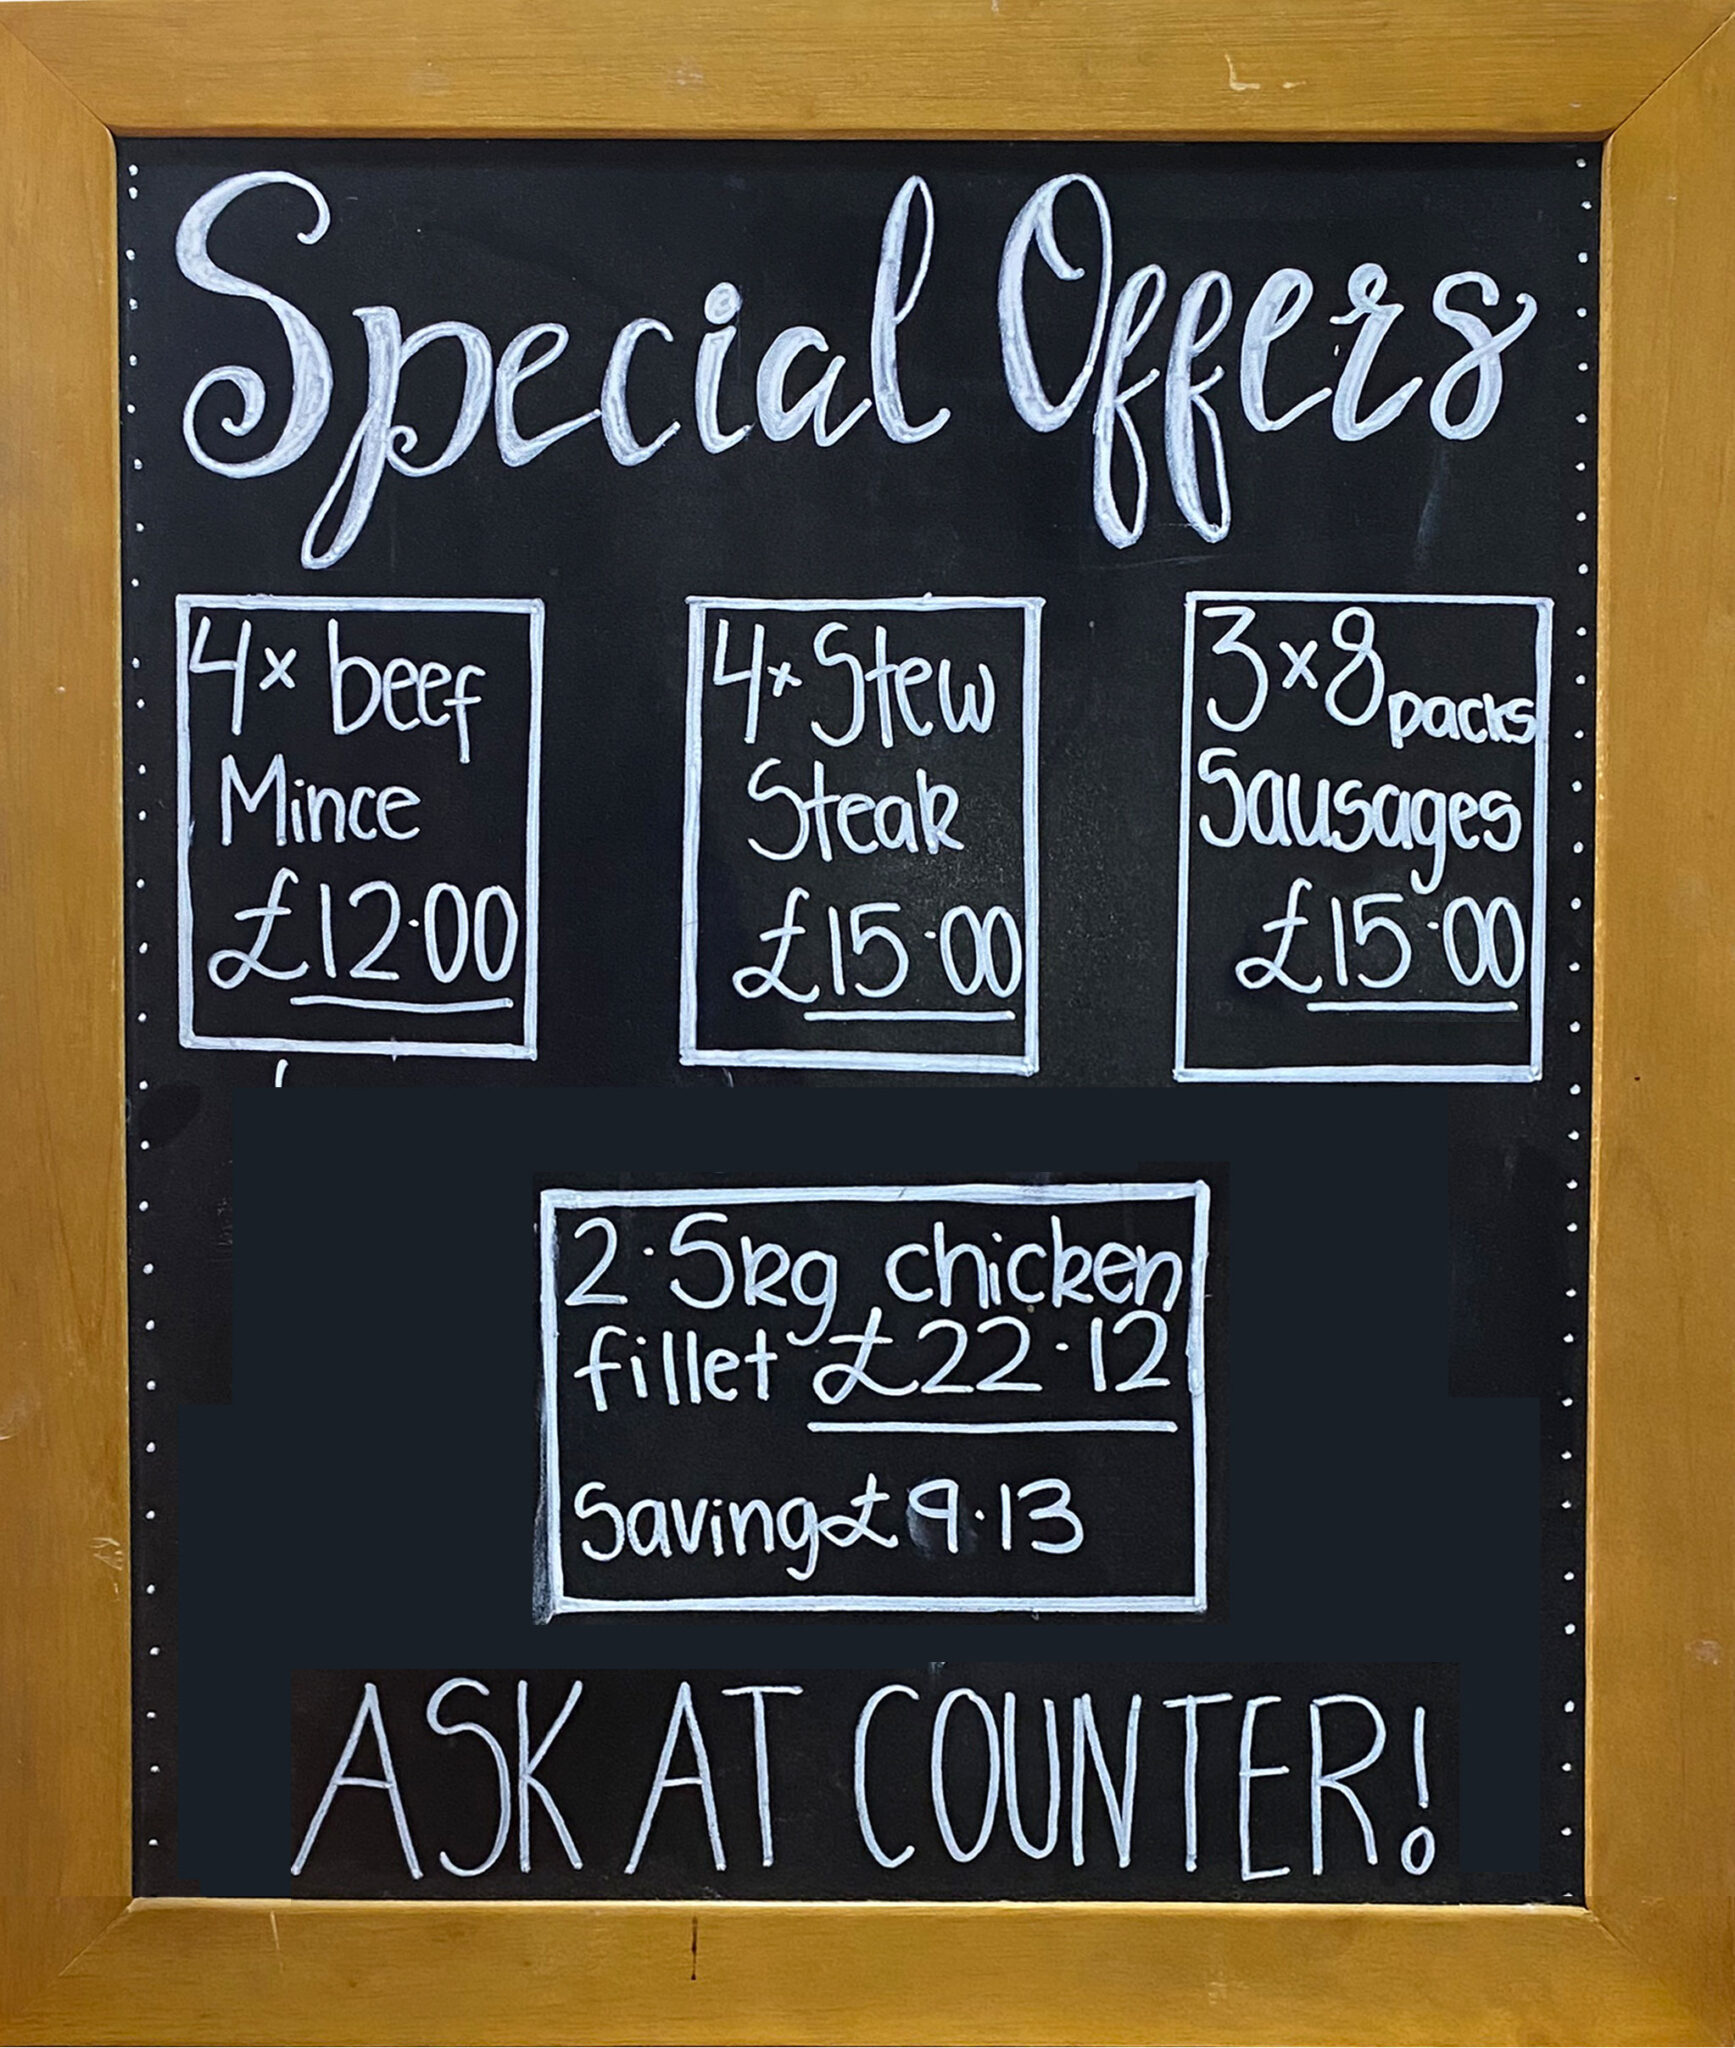 Special Offers
4x beef
Mince
£12·00
4x Stew
Steak
£15·00
3x8 packs
Sausages
£15·00
2·5kg chicken
fillet £22·12
Saving £9·13
ASK AT COUNTER!